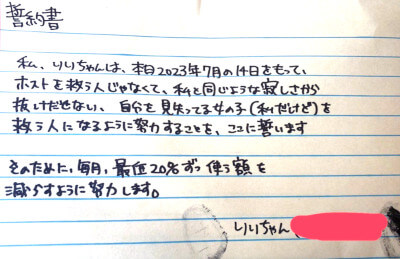 誓約書
私、りりちゃんは、本日2023年7月の14日をもって、
ホストを救う人じゃなくて、私と同じような寂しさから
抜けだせない、自分を見失ってる女の子(私だけど)を
救う人になるように努力することを、ここに誓います
そのために、毎月、最低20%ずつ使う額を
減らすように努力します。
りりちゃん